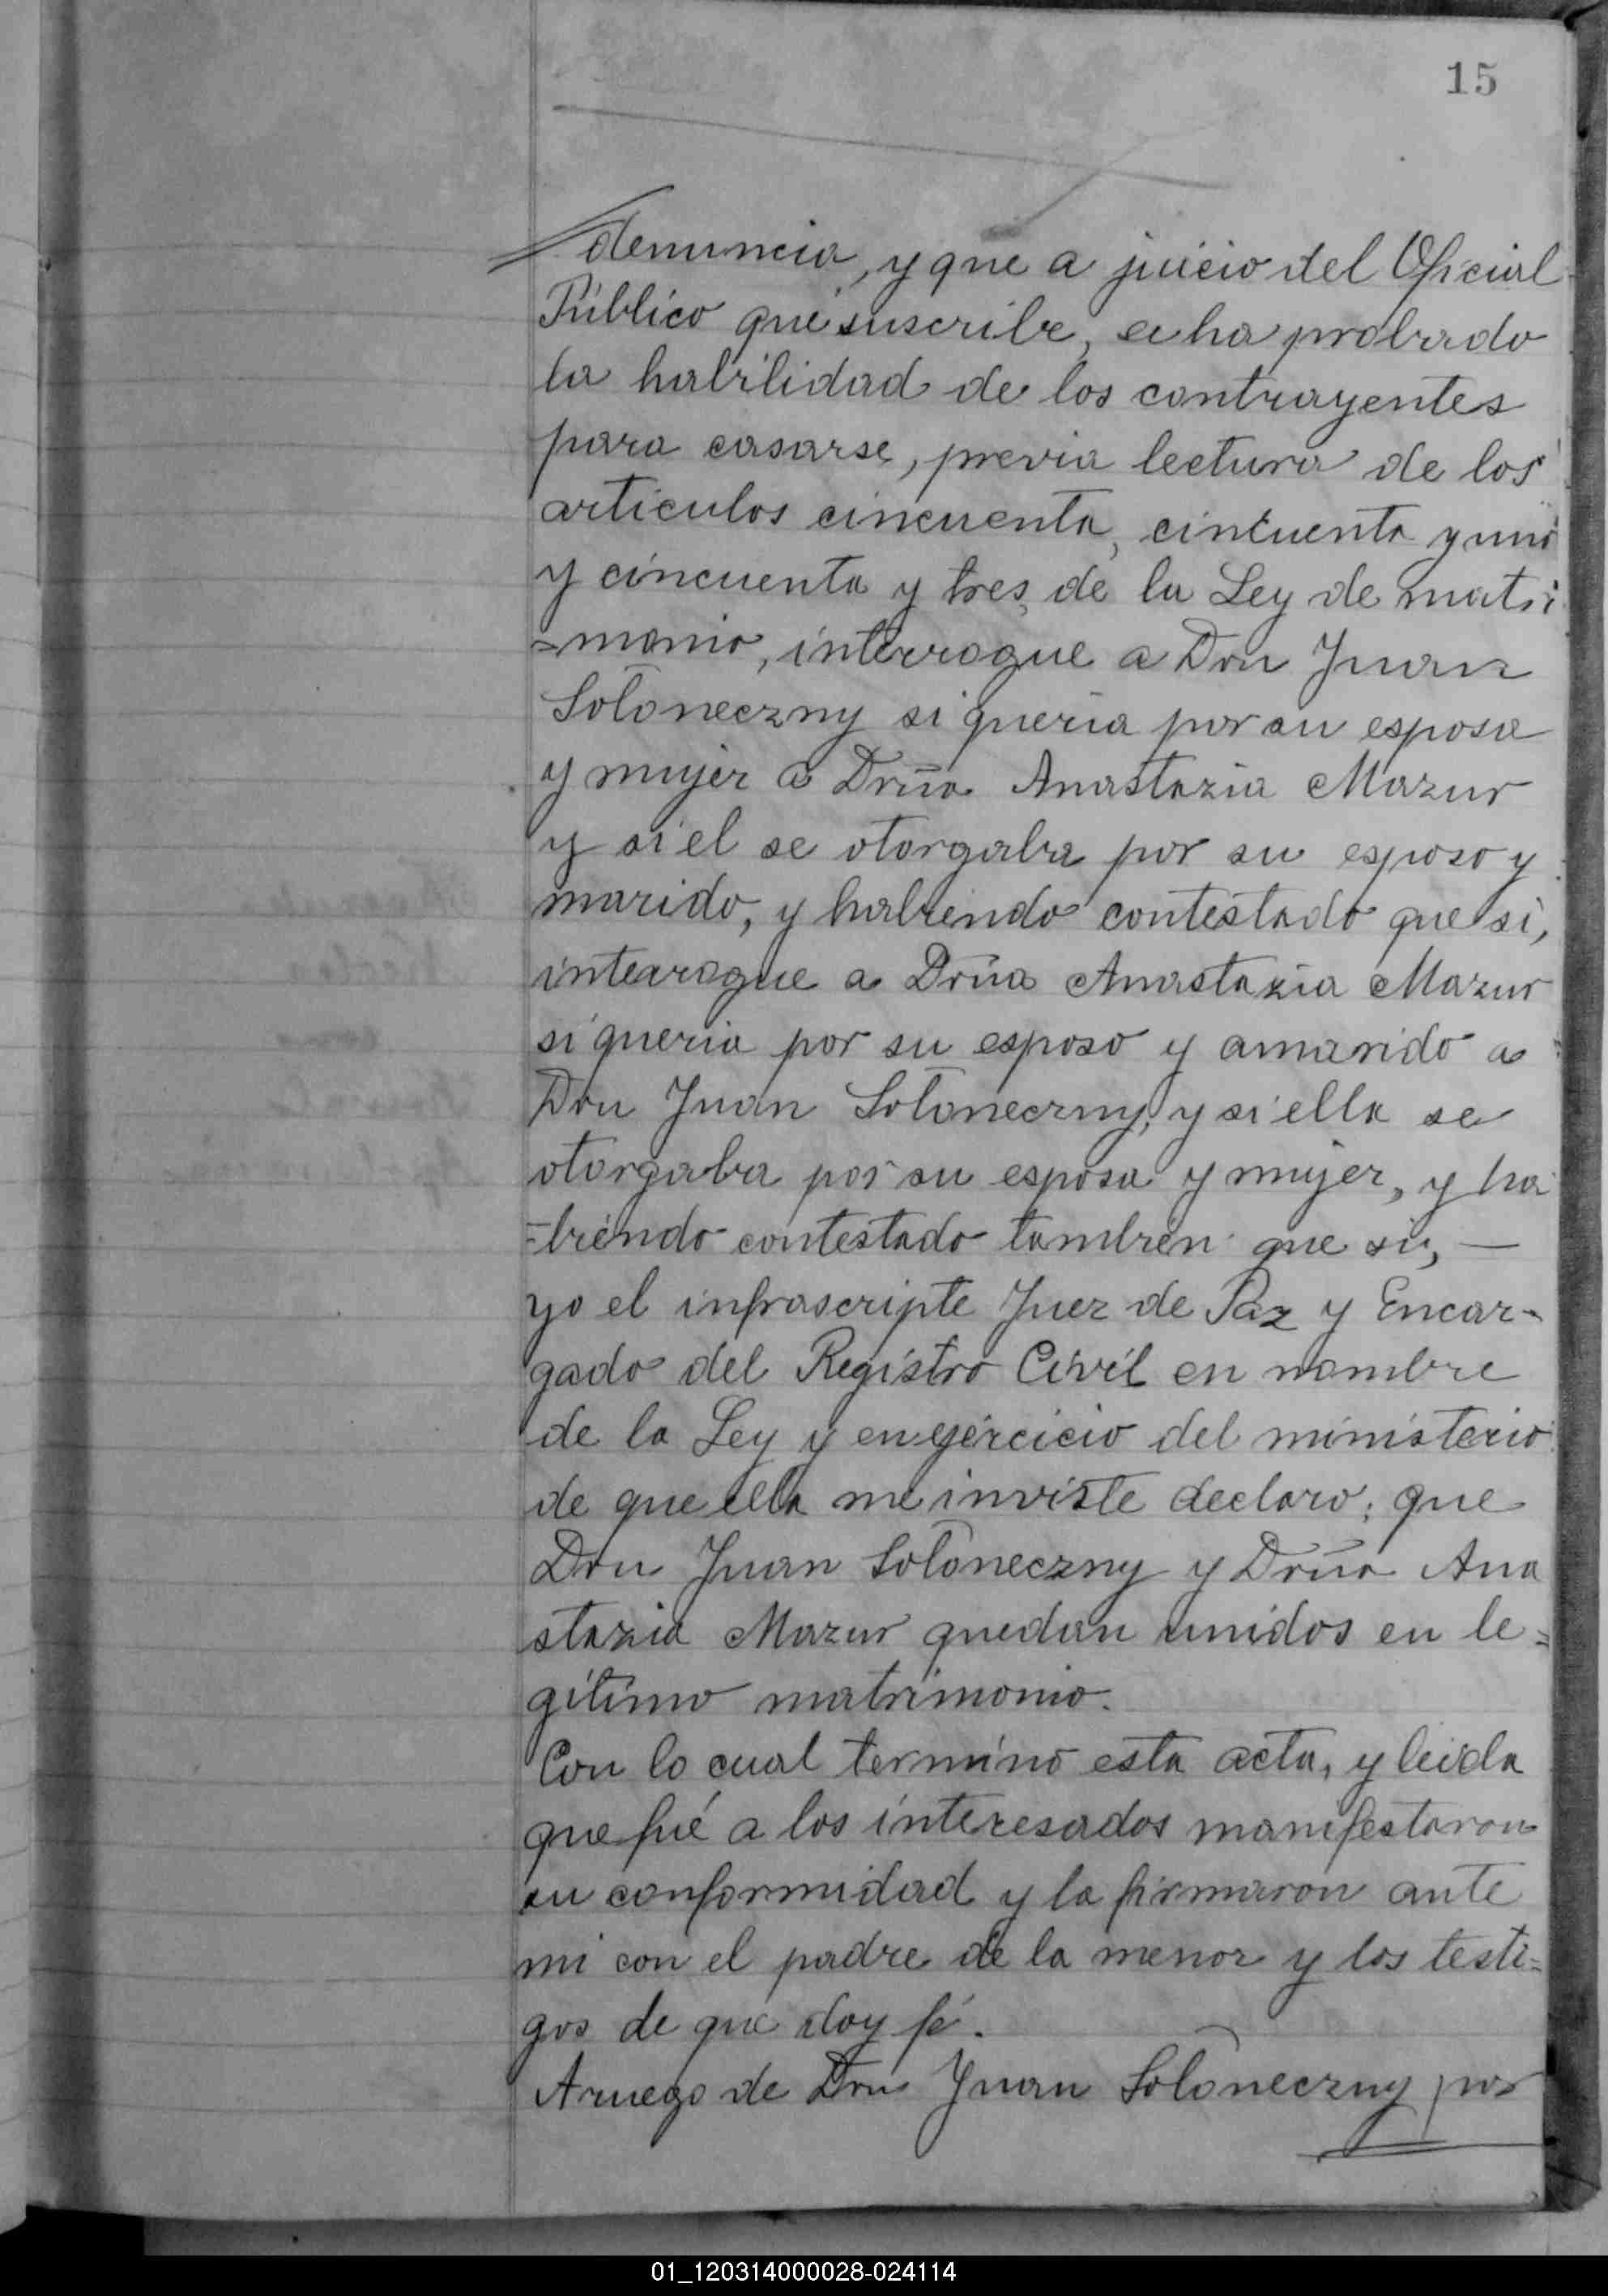 15
denuncia, y que a juicio del Oficial
Público que suscribe, se ha probado
la habilidad de los contrayentes
para casarse, previa lectura de los
articulos cincuenta, cincuenta y uno
y cincuenta y tres, de la Ley de matri
=monio, interrogue a Don Juan
Soloneczny si queria por su esposa
y mujer a Doña Anastazia Mazur
y si el se otorgaba por su esposo y
marido, y habiendo contestado que si,
interrogue a Doña Anastazia Mazur
si queria por su esposo y amarido a
Don Juan Soloneczny, y si ella se
otorgaba por su esposa y mujer, y ha
=biendo contestado tambien que si, —
yo el infrascripte Juez de Paz y Encar-
gado del Registro Civil en nombre
de la Ley y en ejercicio del ministerio
de que ella me inviste declaro: que
Don Juan Soloneczny y Doña Ana
stazia Mazur quedan unidos en le=
gitimo matrimonio.
Con lo cual terminó esta acta, y leida
que fué a los interesados manifestaron
su conformidad y la firmaron ante
mi con el padre de la menor y los testi=
gos de que doy fé.
Aruego de Don Juan Soloneczny por
01_120314000028-024114